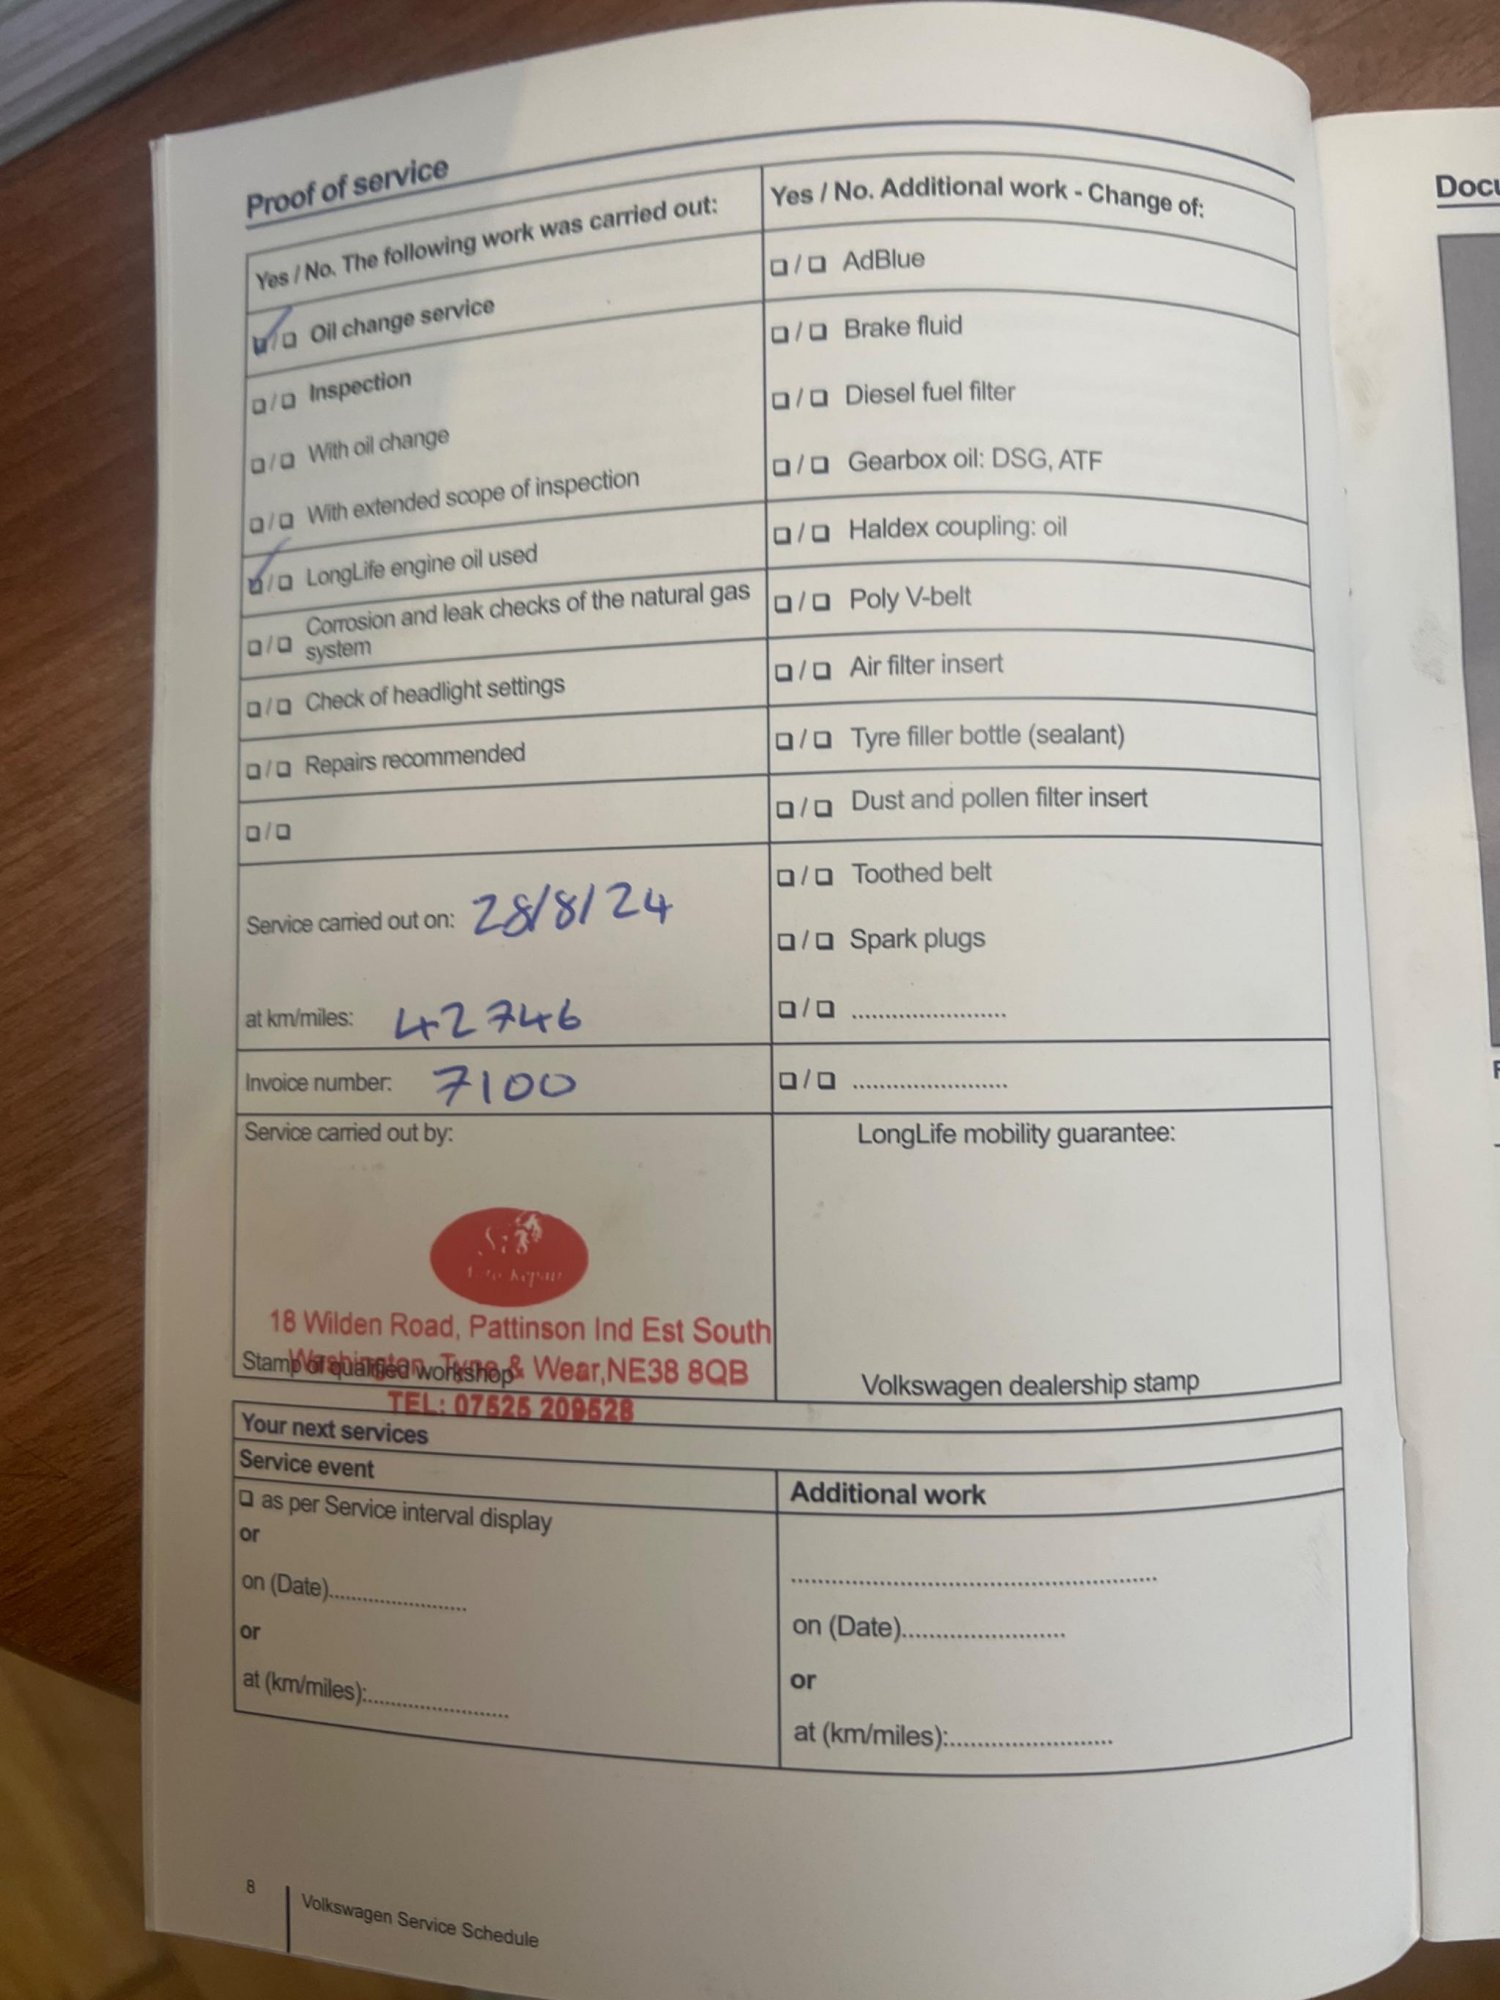 Proof of service
Yes / No. The following work was carried out:
❑ / ❑ Oil change service
❑ / ❑ Inspection
❑ / ❑ With oil change
❑ / ❑ With extended scope of inspection
❑ / ❑ LongLife engine oil used
❑ / ❑ Corrosion and leak checks of the natural gas
system
❑ / ❑ Check of headlight settings
❑ / ❑ Repairs recommended
❑ / ❑
Service carried out on: 28/8/24
at km/miles: 42746
Invoice number: 7100
Service carried out by:
18 Wilden Road, Pattinson Ind Est South
Washington, Tyne & Wear, NE38 8QB
Stamp of qualified workshop
TEL: 07525 209528
Yes / No. Additional work - Change of:
❑ / ❑ AdBlue
❑ / ❑ Brake fluid
❑ / ❑ Diesel fuel filter
❑ / ❑ Gearbox oil: DSG, ATF
❑ / ❑ Haldex coupling: oil
❑ / ❑ Poly V-belt
❑ / ❑ Air filter insert
❑ / ❑ Tyre filler bottle (sealant)
❑ / ❑ Dust and pollen filter insert
❑ / ❑ Toothed belt
❑ / ❑ Spark plugs
❑ / ❑ .......................
❑ / ❑ .......................
LongLife mobility guarantee:
Volkswagen dealership stamp
Your next services
Service event
❑ as per Service interval display
or
on (Date).......................
or
at (km/miles):.......................
Additional work
.......................................................
on (Date).........................
or
at (km/miles):.........................
8
Volkswagen Service Schedule